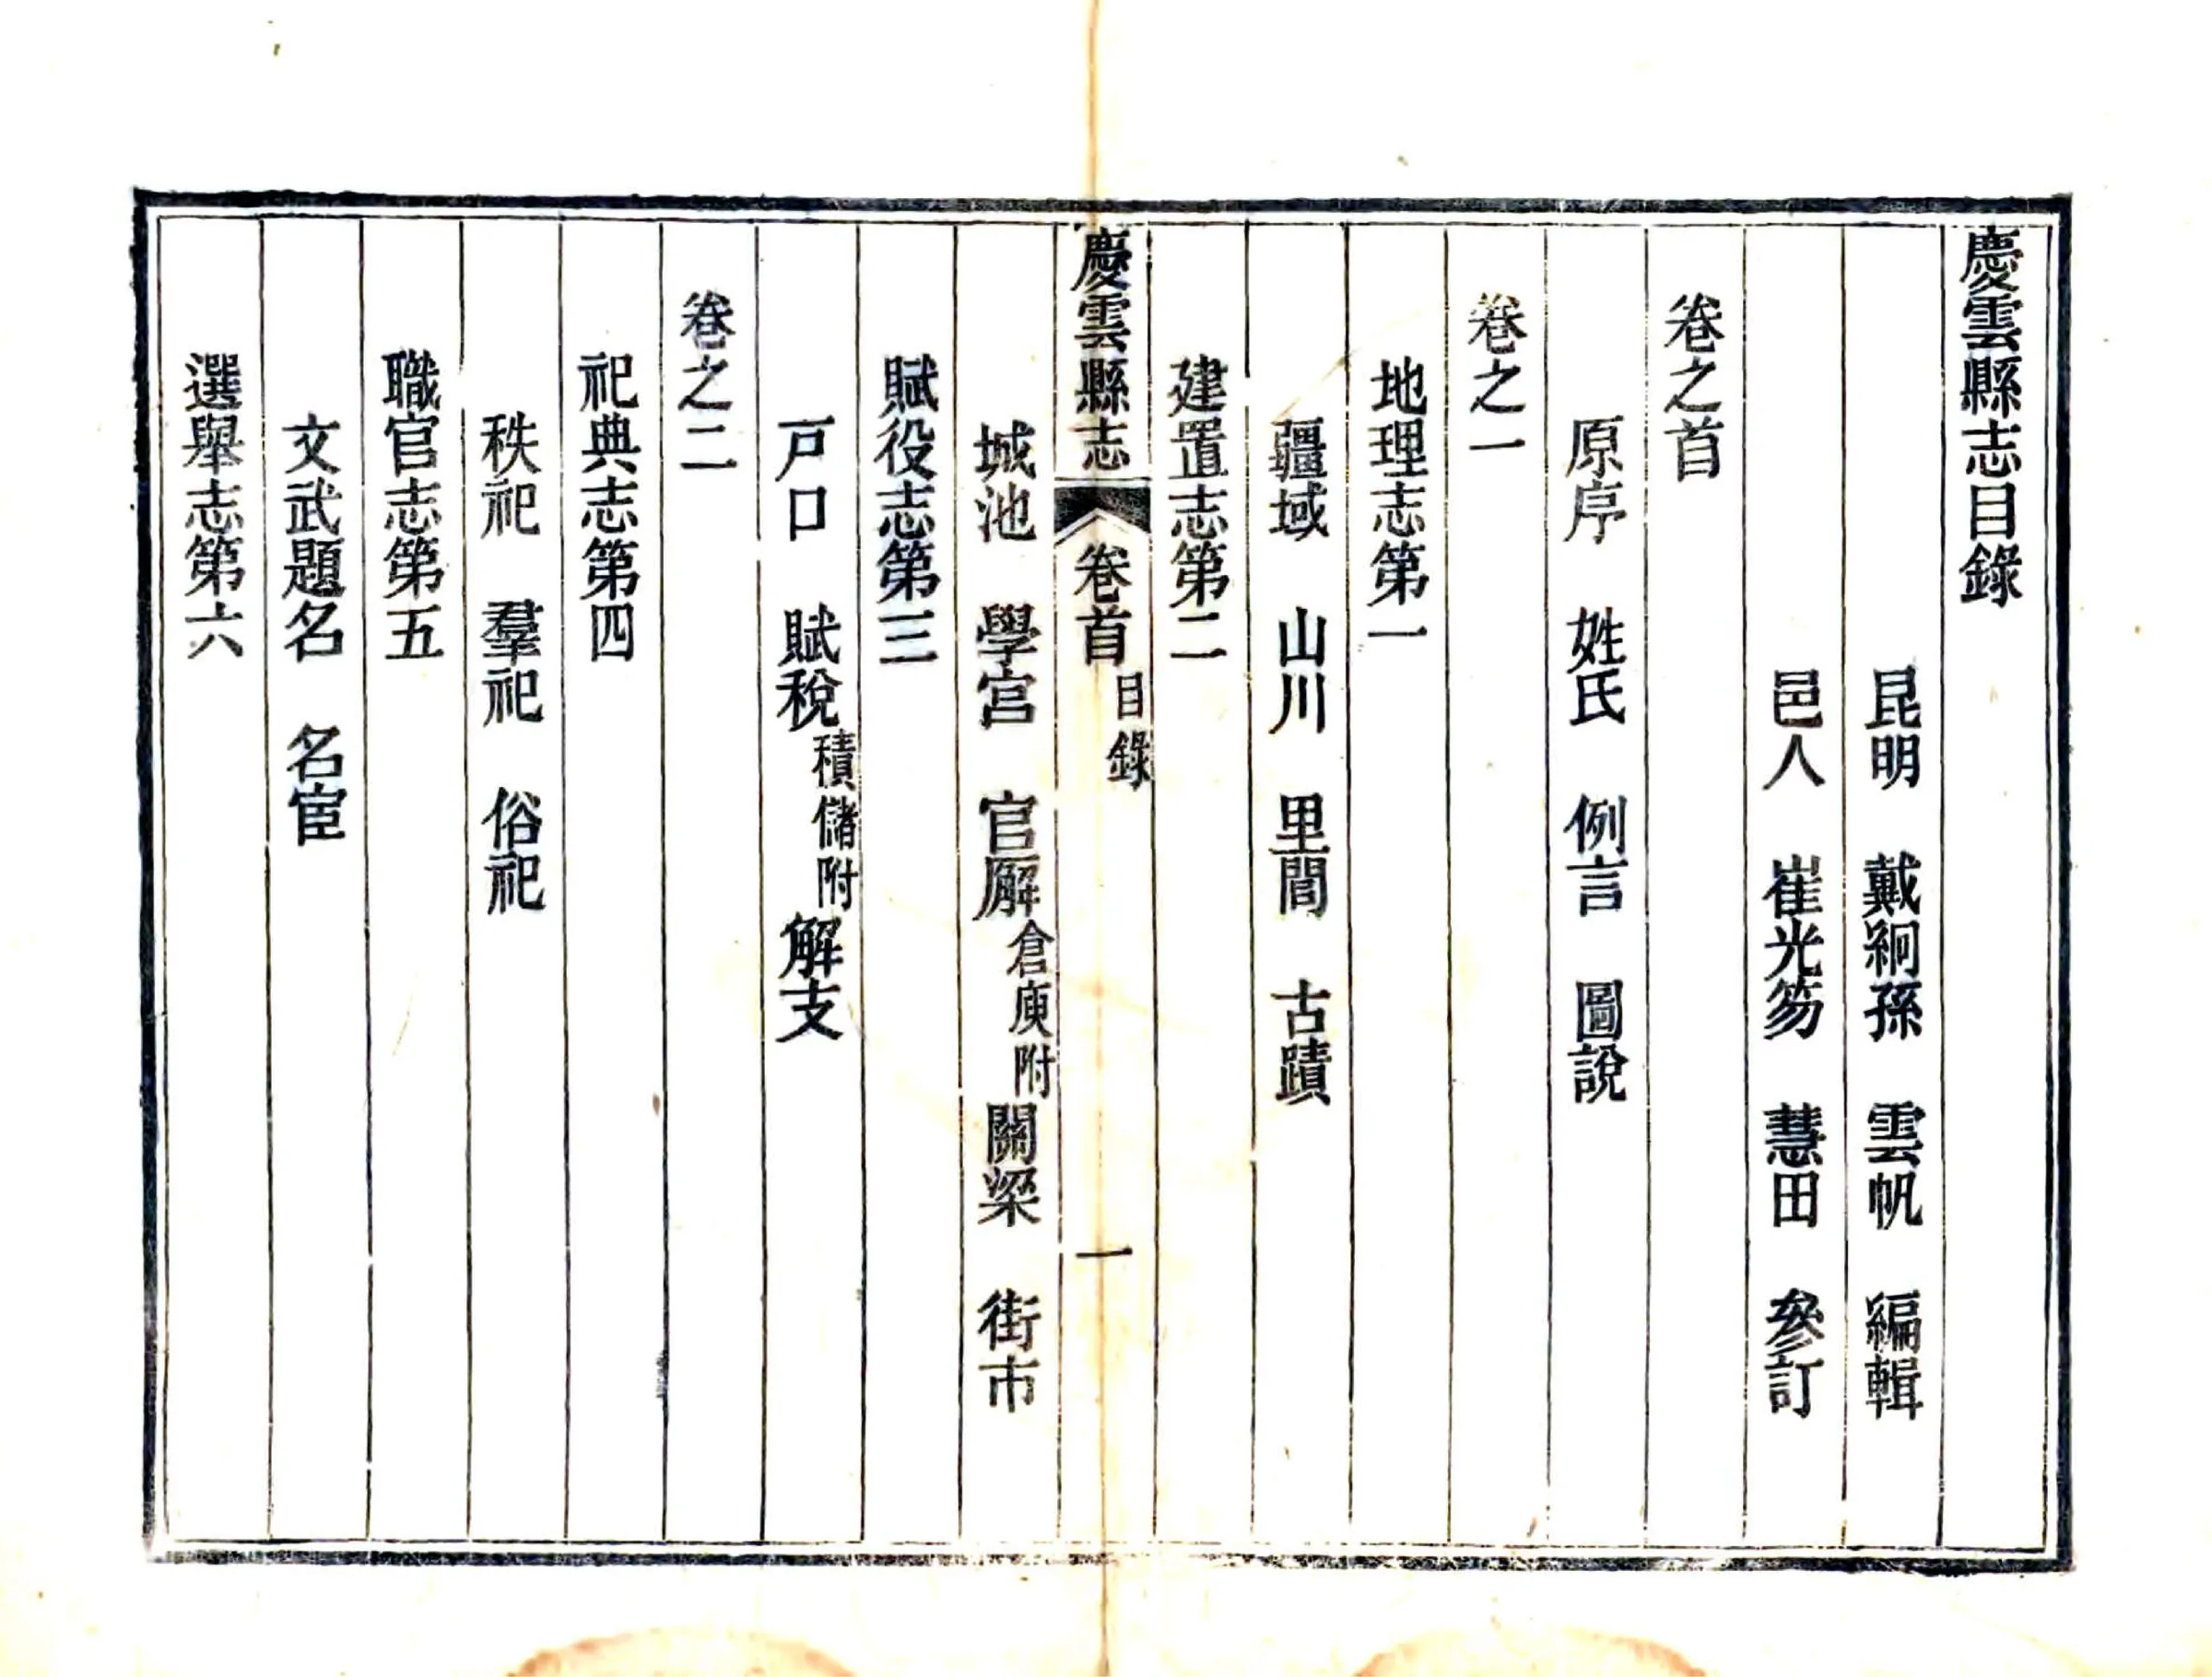 慶雲縣志目錄
昆明　戴絅孫　雲帆　編輯
邑人　崔光笏　慧田　參訂
卷之首
原序　姓氏　例言　圖說
卷之一
地理志第一
疆域　山川　里閭　古蹟
建置志第二
慶雲縣志　卷首　目錄　一
城池　學宮　官廨倉庾附關梁　街市
賦役志第三
戶口　賦稅積儲附解支
卷之二
祀典志第四
秩祀　羣祀　俗祀
職官志第五
文武題名　名宦
選舉志第六